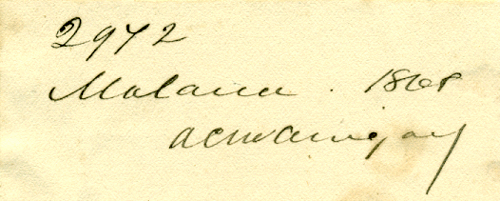 2972
Malacca . 1868
ACMaingay